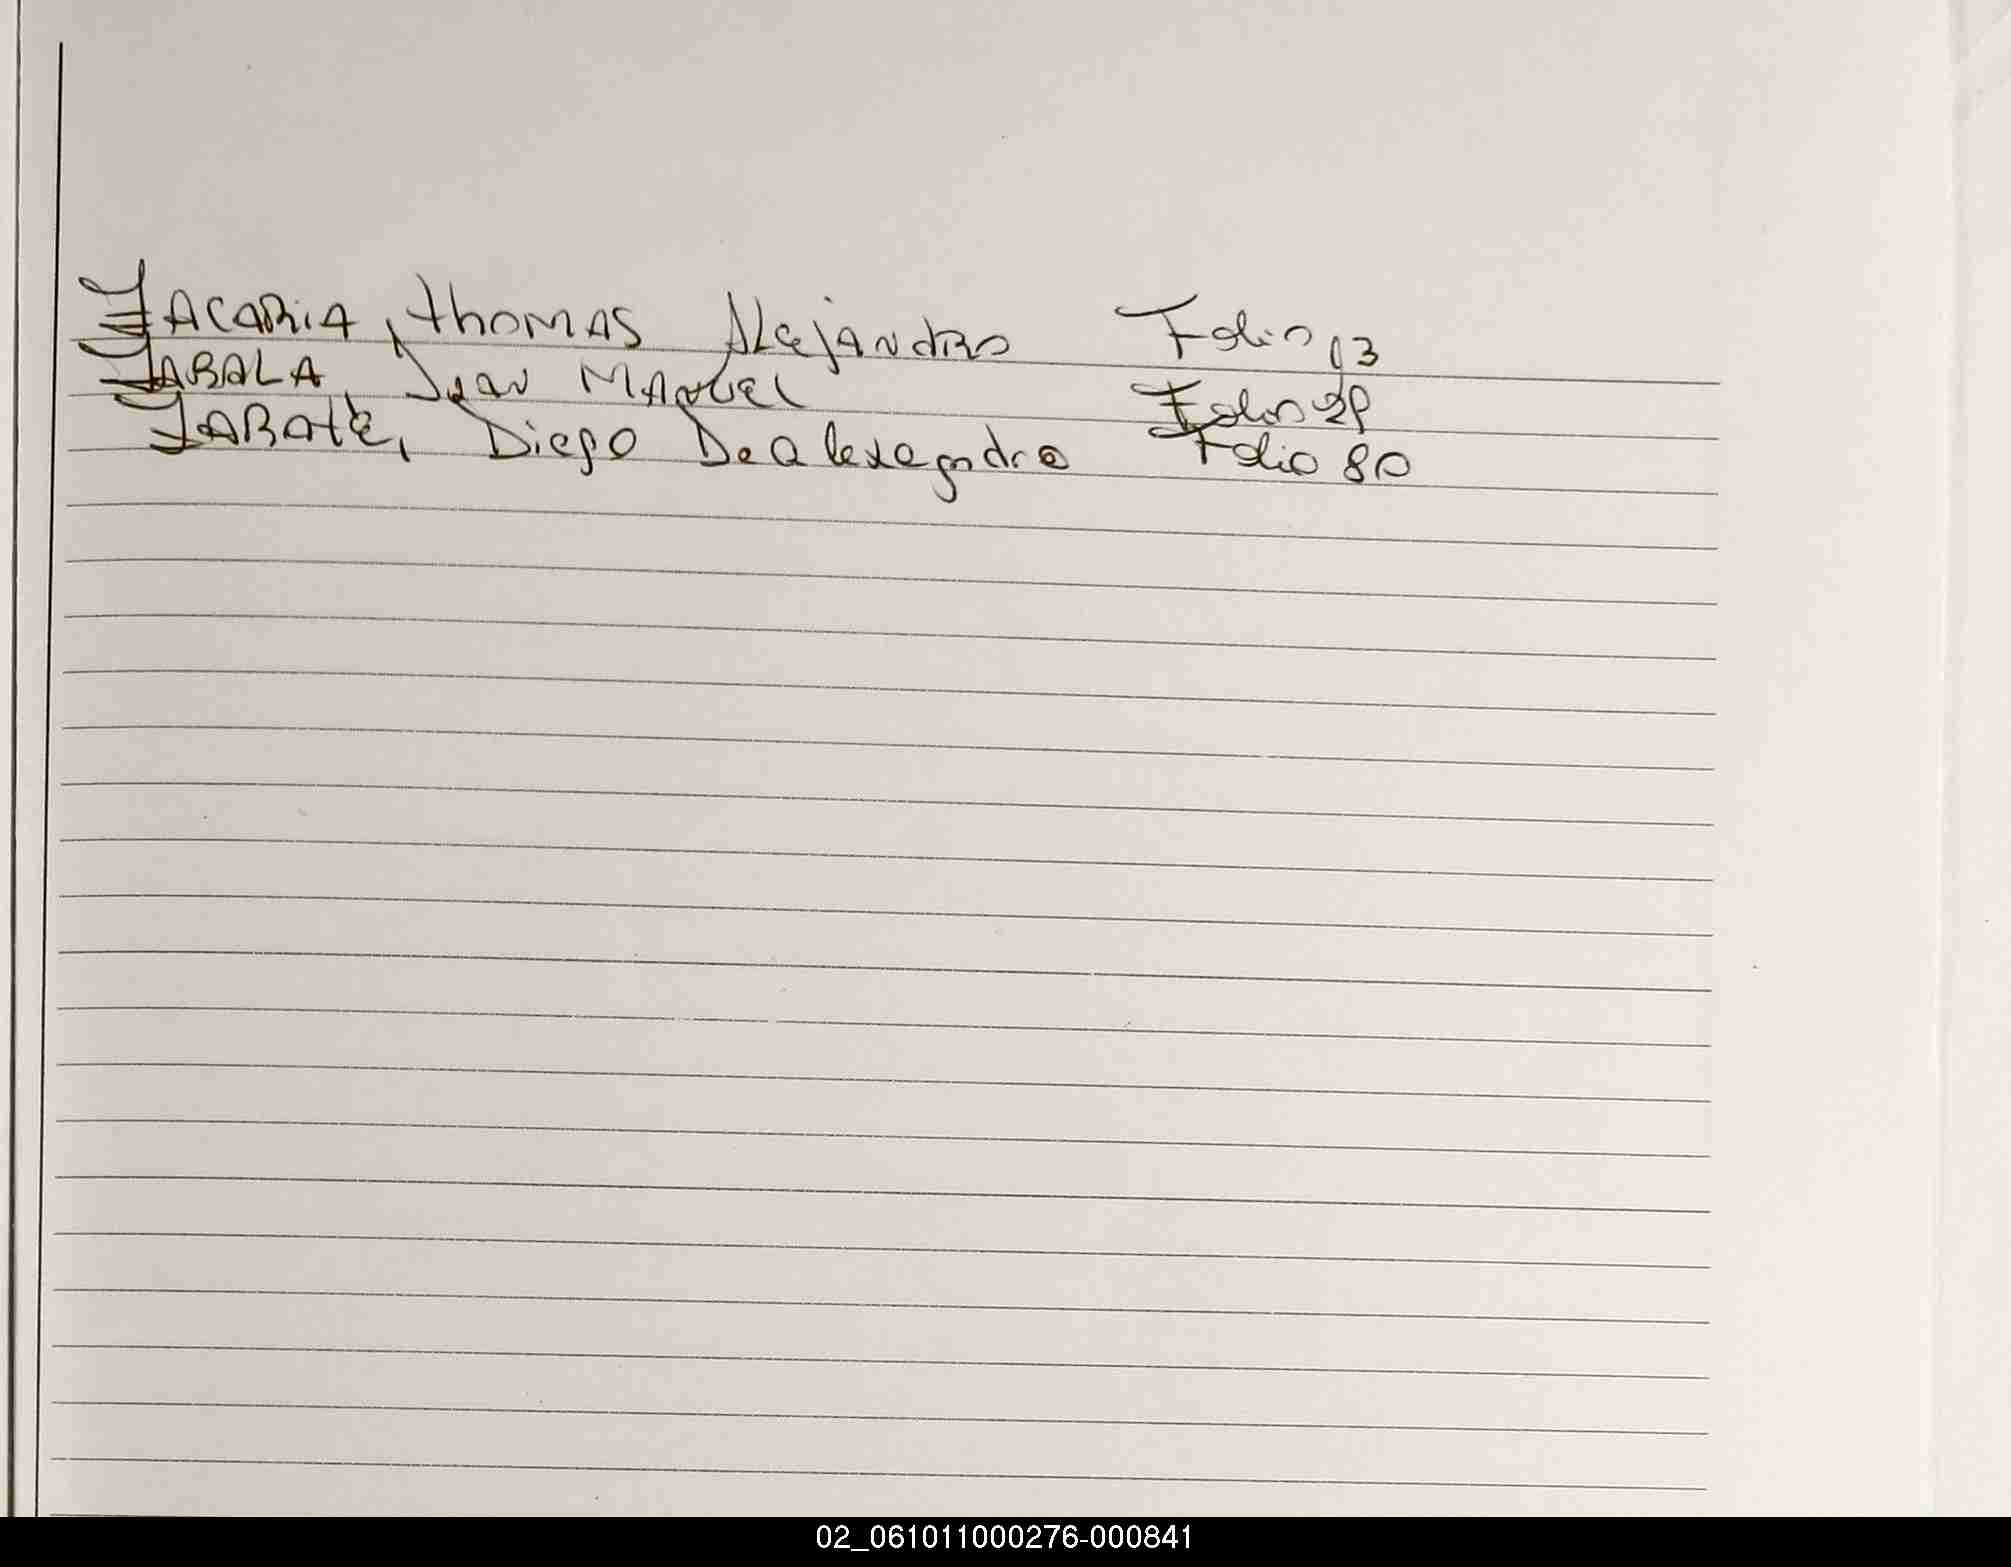 ZACARIA, thomas Alejandro Folio 13
ZABALA, Juan Manuel Folio 28
ZARATE, Diego De alexandro Folio 80
02_061011000276-000841